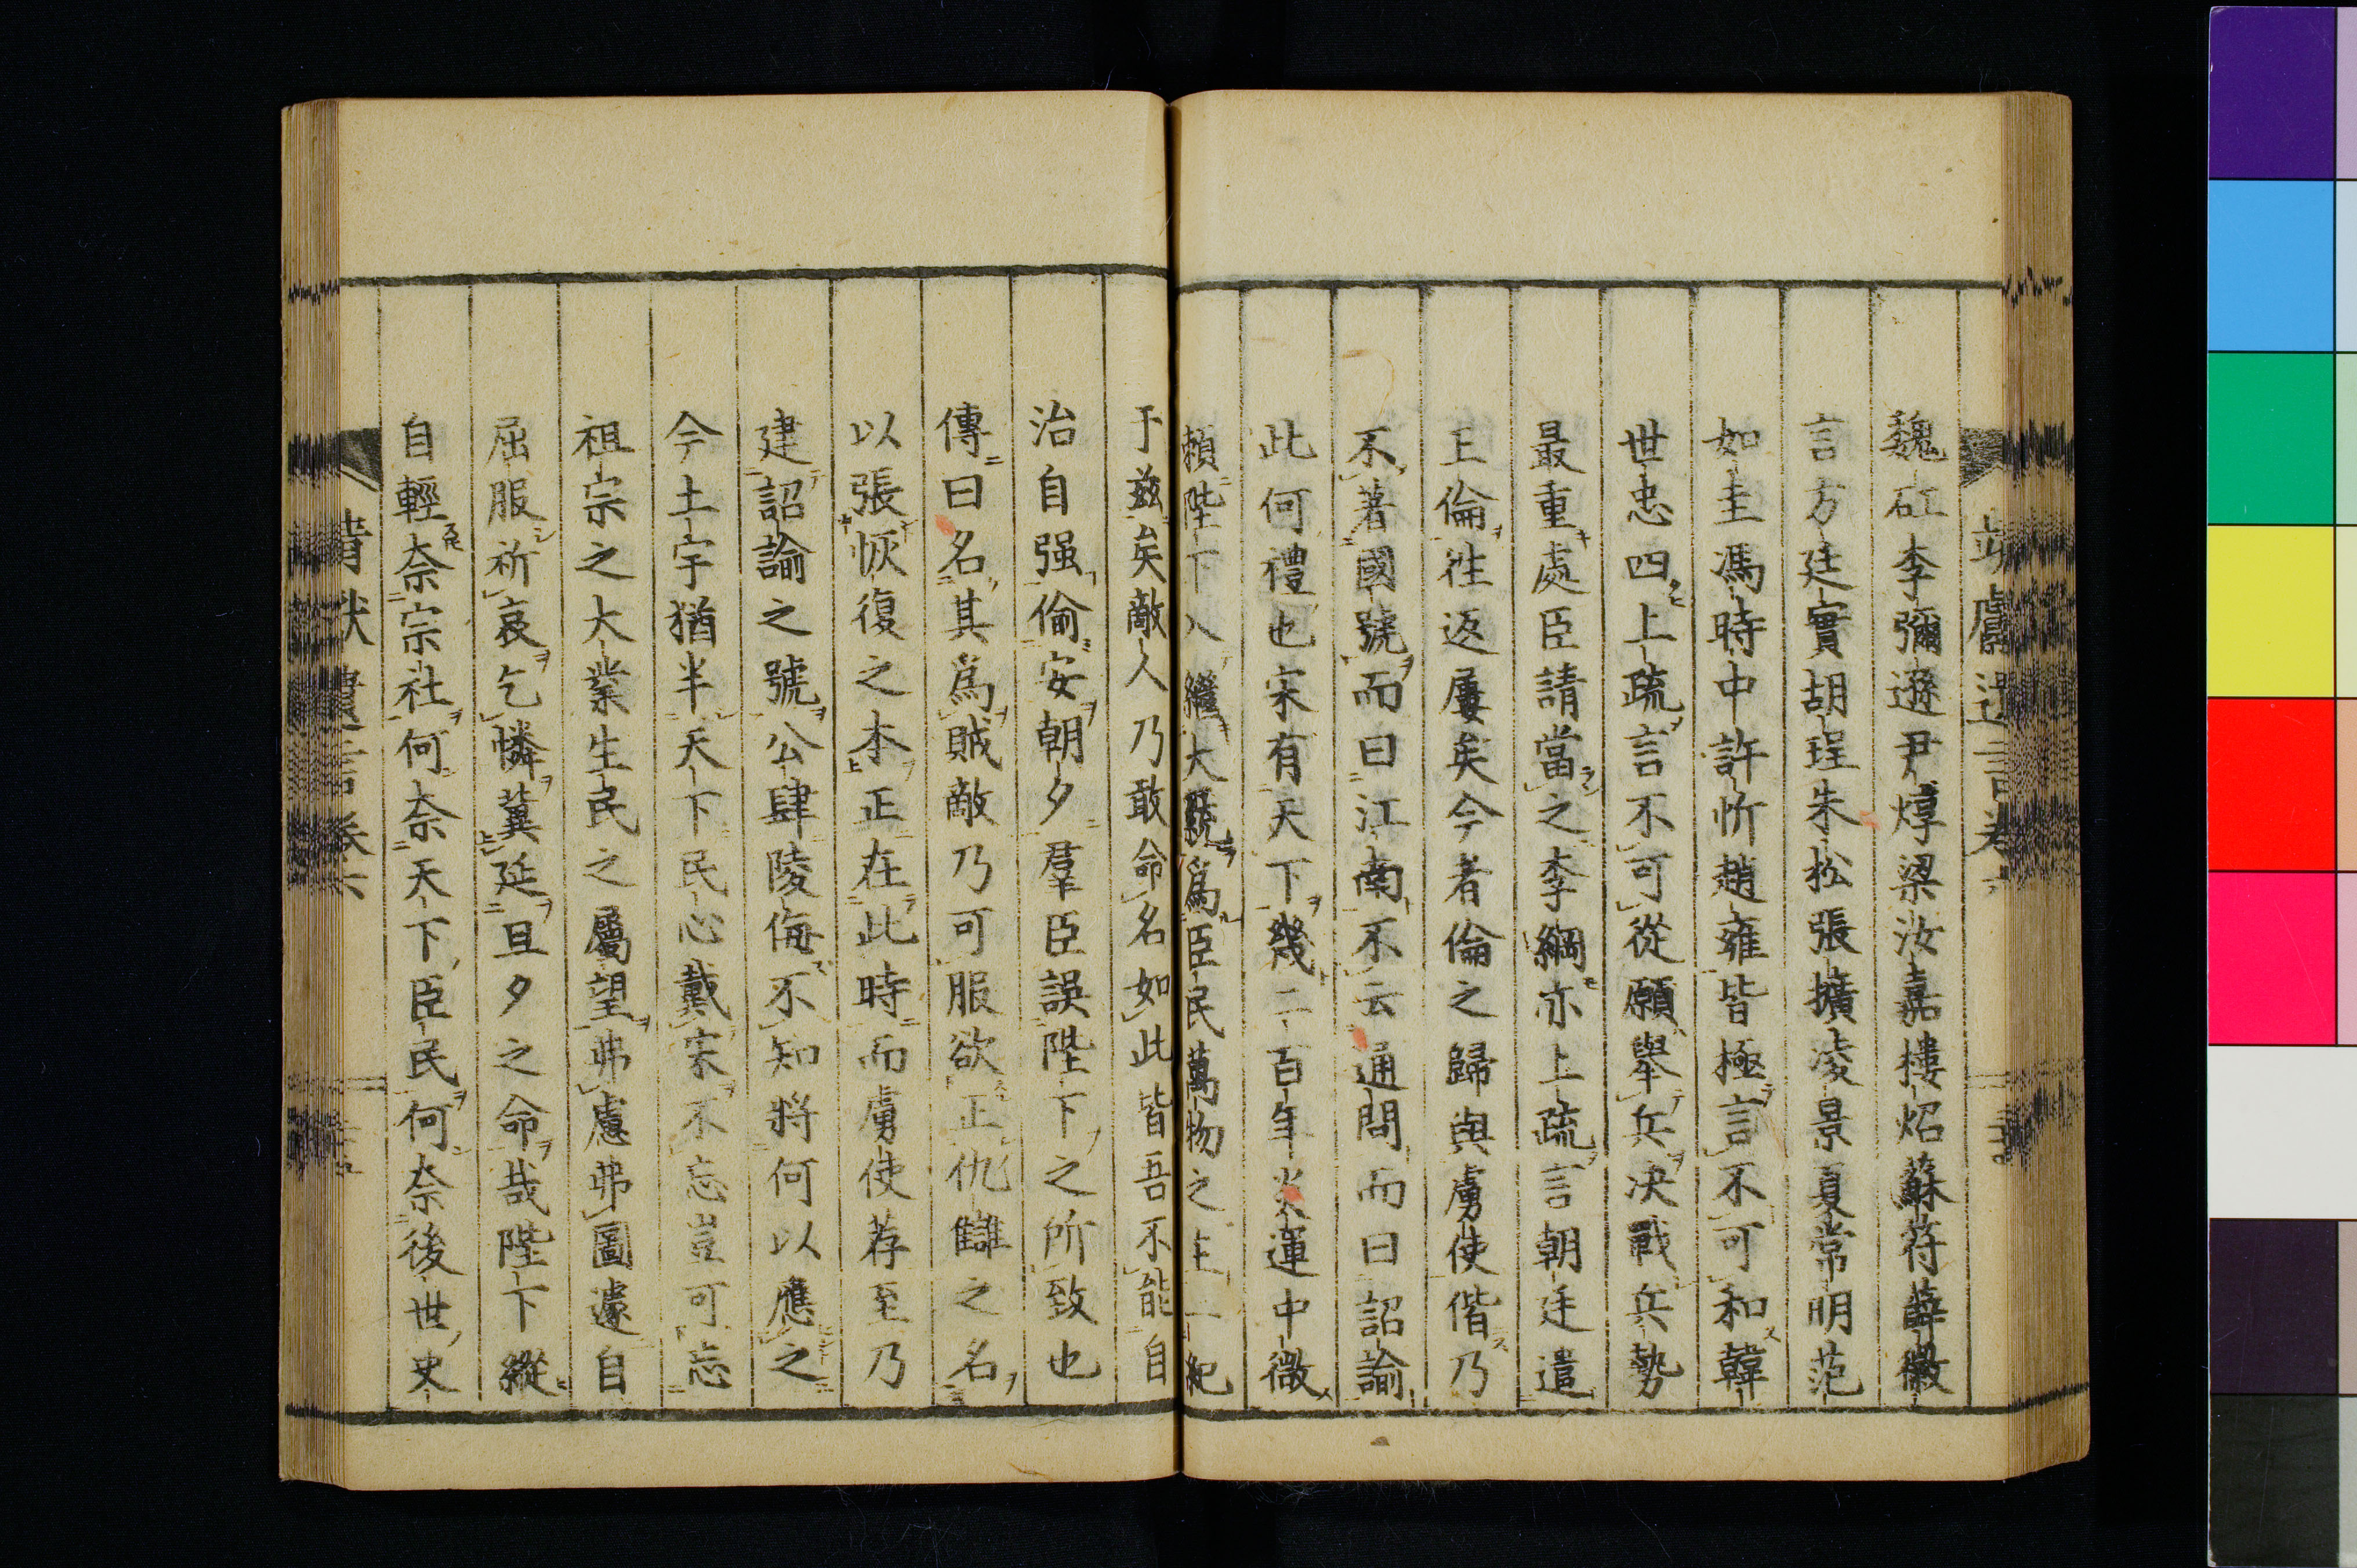 魏矼李彌遜尹焞梁汝嘉樓炤蘇符薛徽
言方廷實胡珵朱松張擴凌景夏常明范
如圭馮時中許忻趙雍皆極言不可和韓
世忠四上疏言不可從願舉兵決戰兵勢
最重處臣請當之李綱亦上疏言朝廷遣
王倫往返屢矣今者倫之歸與虜使偕乃
不著國號而曰江南不云通問而曰詔諭
此何禮也宋有天下幾二百年炎運中微
賴陛下入繼大統爲臣民萬物之主一紀
于茲矣敵人乃敢命名如此皆吾不能自
治自强偷安朝夕羣臣誤陛下之所致也
傳曰名其爲賊敵乃可服欲正仇讎之名
以張恢復之本正在此時而虜使荐至乃
建詔諭之號公肆陵侮不知將何以應之
今土宇猶半天下民心戴宋不忘豈可忘
祖宗之大業生民之屬望弗慮弗圖遽自
屈服祈哀乞憐冀延旦夕之命哉陛下縱
自輕奈宗社何奈天下臣民何奈後世史